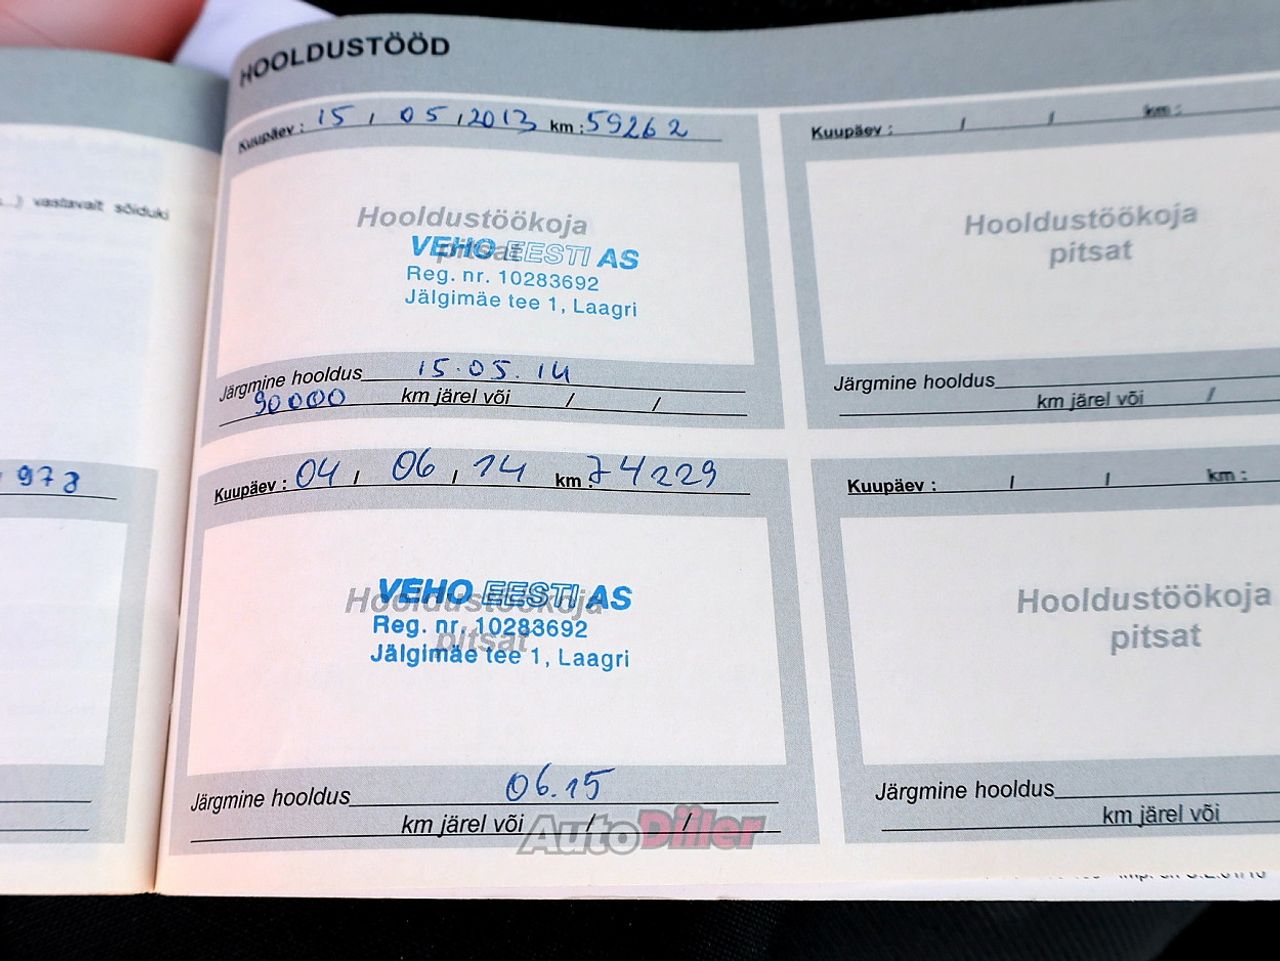 ...) vastavalt sõiduki
973
HOOLDUSTÖÖD
Kuupäev : 15 / 05 / 2013 km : 59262
Hooldustöökoja
pitsat
VEHO EESTI AS
Reg. nr. 10283692
Jälgimäe tee 1, Laagri
Järgmine hooldus 15.05.14
90000 km järel või / /
Kuupäev : 04 / 06 / 14 km : 74229
Hooldustöökoja
pitsat
VEHO EESTI AS
Reg. nr. 10283692
Jälgimäe tee 1, Laagri
Järgmine hooldus 06.15
km järel või / /
AutoDiiler
Kuupäev : / / km :
Hooldustöökoja
pitsat
Järgmine hooldus
km järel või /
Kuupäev : / / km :
Hooldustöökoja
pitsat
Järgmine hooldus
km järel või